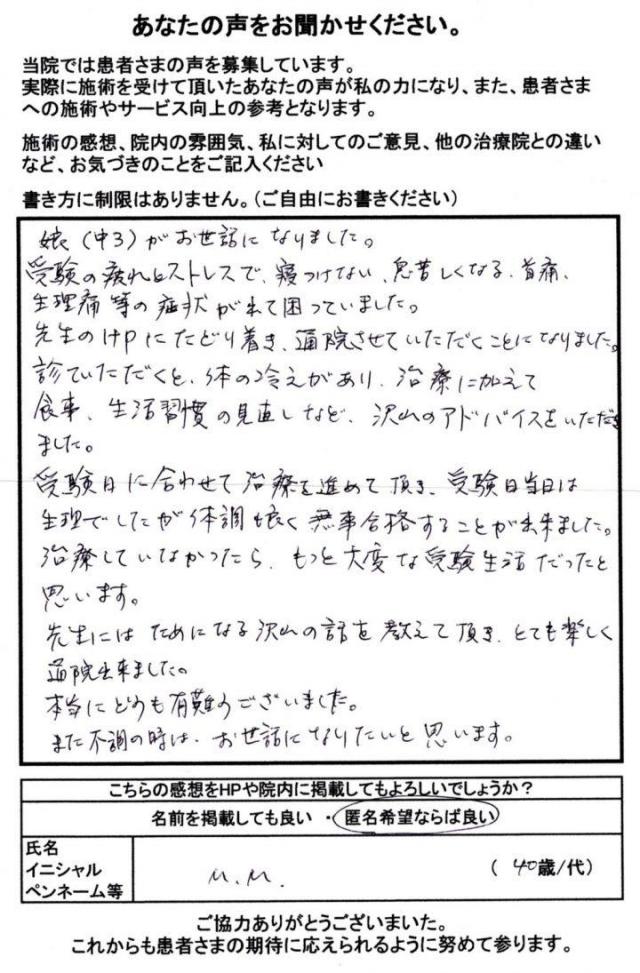 あなたの声をお聞かせください。
当院では患者さまの声を募集しています。
実際に施術を受けて頂いたあなたの声が私の力になり、また、患者さま
への施術やサービス向上の参考となります。
施術の感想、院内の雰囲気、私に対してのご意見、他の治療院との違い
など、お気づきのことをご記入ください
書き方に制限はありません。（ご自由にお書きください）
娘（中3）がお世話になりました。
受験の疲れとストレスで、寝つけない、息苦しくなる、首痛、
生理痛等の症状がでて困っていました。
先生のHPにたどり着き、通院させていただくことになりました。
診ていただくと、体の冷えがあり、治療に加えて
食事、生活習慣の見直しなど、沢山のアドバイスをいただき
ました。
受験日に合わせて治療を進めて頂き、受験日当日は
生理でしたが体調も良く無事合格することが出来ました。
治療していなかったら、もっと大変な受験生活だったと
思います。
先生にはためになる沢山の話を教えて頂き、とても楽しく
通院出来ました。
本当にどうも有難うございました。
また不調の時は、お世話になりたいと思います。
こちらの感想をHPや院内に掲載してもよろしいでしょうか？
名前を掲載しても良い ・ 匿名希望ならば良い
氏名
イニシャル
ペンネーム等
M.M.
（ 40歳/代）
ご協力ありがとうございまいた。
これからも患者さまの期待に応えられるように努めて参ります。